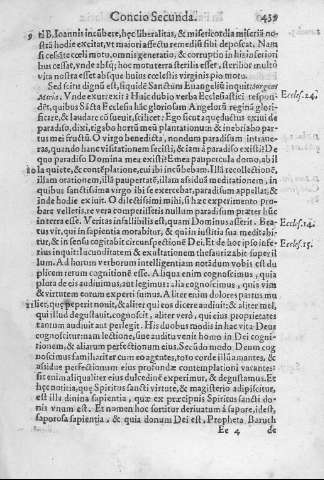 Concio Secunda. 439
9 ti B. Ioannis incūbere, hęc liberalitas, & misericordia miseriā no-
strā hodie excitat, vt maiori affectu remediū sibi deposcat. Nam
si cesāte cœli motu, omnis generatio, & corruptio in his inferiori
bus cesāt, vnde absq; hoc mota terra sterilis esset, sterilior multò
vita nostra esset absque huius cœlestis virginis pio motu.
Sed scitu dignū est, siquidē Sanctum Euangeliū inquit: surgens
Maria. Vnde exurrexit? Huic dubio verba Ecclesiastici respon- Eccles. 24.
dēt, quibus Sācta Ecclesia hāc gloriosam Angelorū reginā glorifi-
care, & laudare cōsueuit, scilicet: Ego sicut aquęductus exiui de
paradiso, dixi, rigabo hortū meū plantationum & inebriabo par-
tus mei fructū. O virgo benedicta, nondum paradisum intraue-
ras, quando hanc visitationem fecisti, & iam à paradiso existi? De
quo paradiso Domina mea existi? E mea paupercula domo, ab il
10 la quiete, & contēplatione, cui ibi incūbebam. Illā recollectionē,
illam orationem, illā paupertatē, illam assiduā meditationem, in
quibus sanctissima virgo ibi se exercebat, paradisum appellat, &
inde hodie exiuit. O dilectissimi mihi, si hæc experimento pro-
bare velletis, re vera comperissetis nullum paradisum præter hūc
in terra esse. Veritas infallibilis est, quam Dominus asserit. Bea- Eccles. 14.
tus vir, qui in sapientia morabitur, & qui in iustitia sua meditabi-
tur, & in sensu cogitabit circunspectionē Dei. Et de hoc ipso infe- Eccles. 15.
rius inquit: Iucunditatem & exultationem thesaurizabit super il
lum. Ad horum verborum intelligentiam notādum vobis est du
plicem rerum cognitionē esse. Aliqua enim cognoscimus, quia
plora de eis audiuimus, aut legimus: alia cognoscimus, quia vim
& virtutem eorum experti sumus. Aliter enim dolores partus mu
11 lier, quę peperit nouit, & aliter qui eos dicere audiuit: & aliter mel,
qui illud degustauit, cognoscit, aliter verò, qui eius proprietates
tantum audiuit aut perlegit. His duobus modis in hac vita Deus
cognoscitur: nam lectione, siue auditu venit homo in Dei cogni-
tionem, & aliarum perfectionum eius. Secūdo modo Deum cog
noscimus familiariter cum eo agentes, toto corde illū amantes, &
assiduè perfectionum eius profundæ contemplationi vacantes:
sic enim aliqualiter eius dulcedinē experimur, & degustamus. Et
hęc notitia, quę Spiritus sancti virtute, & magisterio adipiscitur,
est illa diuina sapientia, quæ ex præcipuis Spiritus sancti do-
nis vnum est. Et nomen hoc sortitur deriuatum à sapore, id est,
saporosa sapientia, & quia donum Dei est, Propheta Baruch
Ee 4 de